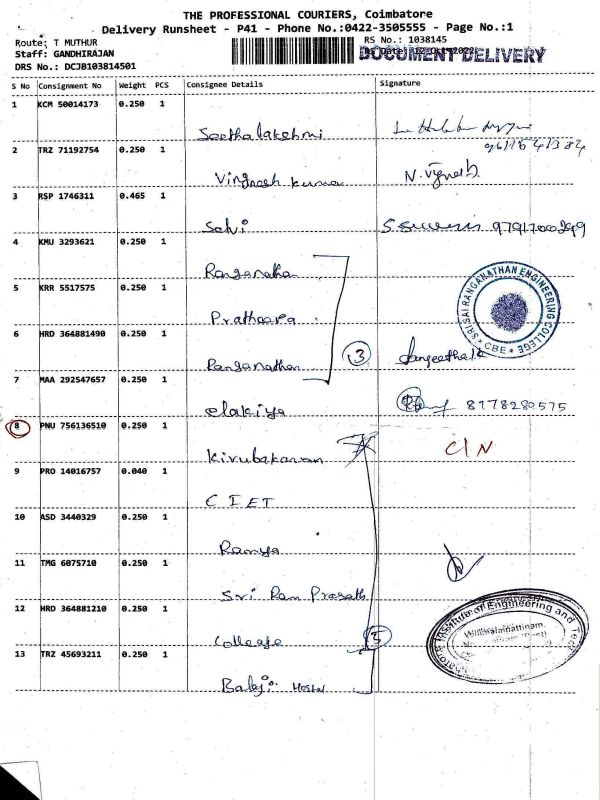 THE PROFESSIONAL COURIERS, Coimbatore
Delivery Runsheet - P41 - Phone No.:0422-3505555 - Page No.:1
Route: T MUTHUR
RS No.: 1038145
Staff: GANDHIRAJAN
DOCUMENT DELIVERY
DRS No.: DCJB103814501
S No Consignment No Weight PCS Consignee Details Signature
1 KCM 50014173 0.250 1
Seethalakshmi
2 TRZ 71192754 0.250 1
Vignesh Kumar N. Vignesh
3 RSP 1746311 0.465 1
Selvi 9791700299
4 KMU 3293621 0.250 1
Ranganathan
5 KRR 5517575 0.250 1
Pratheepa
SRI SAI RANGANATHAN ENGINEERING COLLEGE
* CBE *
6 HRD 364881490 0.250 1
Ranganathan 3 Sangeetha.K
7 MAA 292547657 0.250 1
elakiya 8778280575
8 PNU 756136510 0.250 1
Kirubakaran C/N
9 PRO 14016757 0.040 1
CIET
10 ASD 3440329 0.250 1
Ramya
11 TMG 6075710 0.250 1
Sri Ram Prasath
12 HRD 364881210 0.250 1
College 5
Institute of Engineering and
13 TRZ 45693211 0.250 1
Balaji Hostel